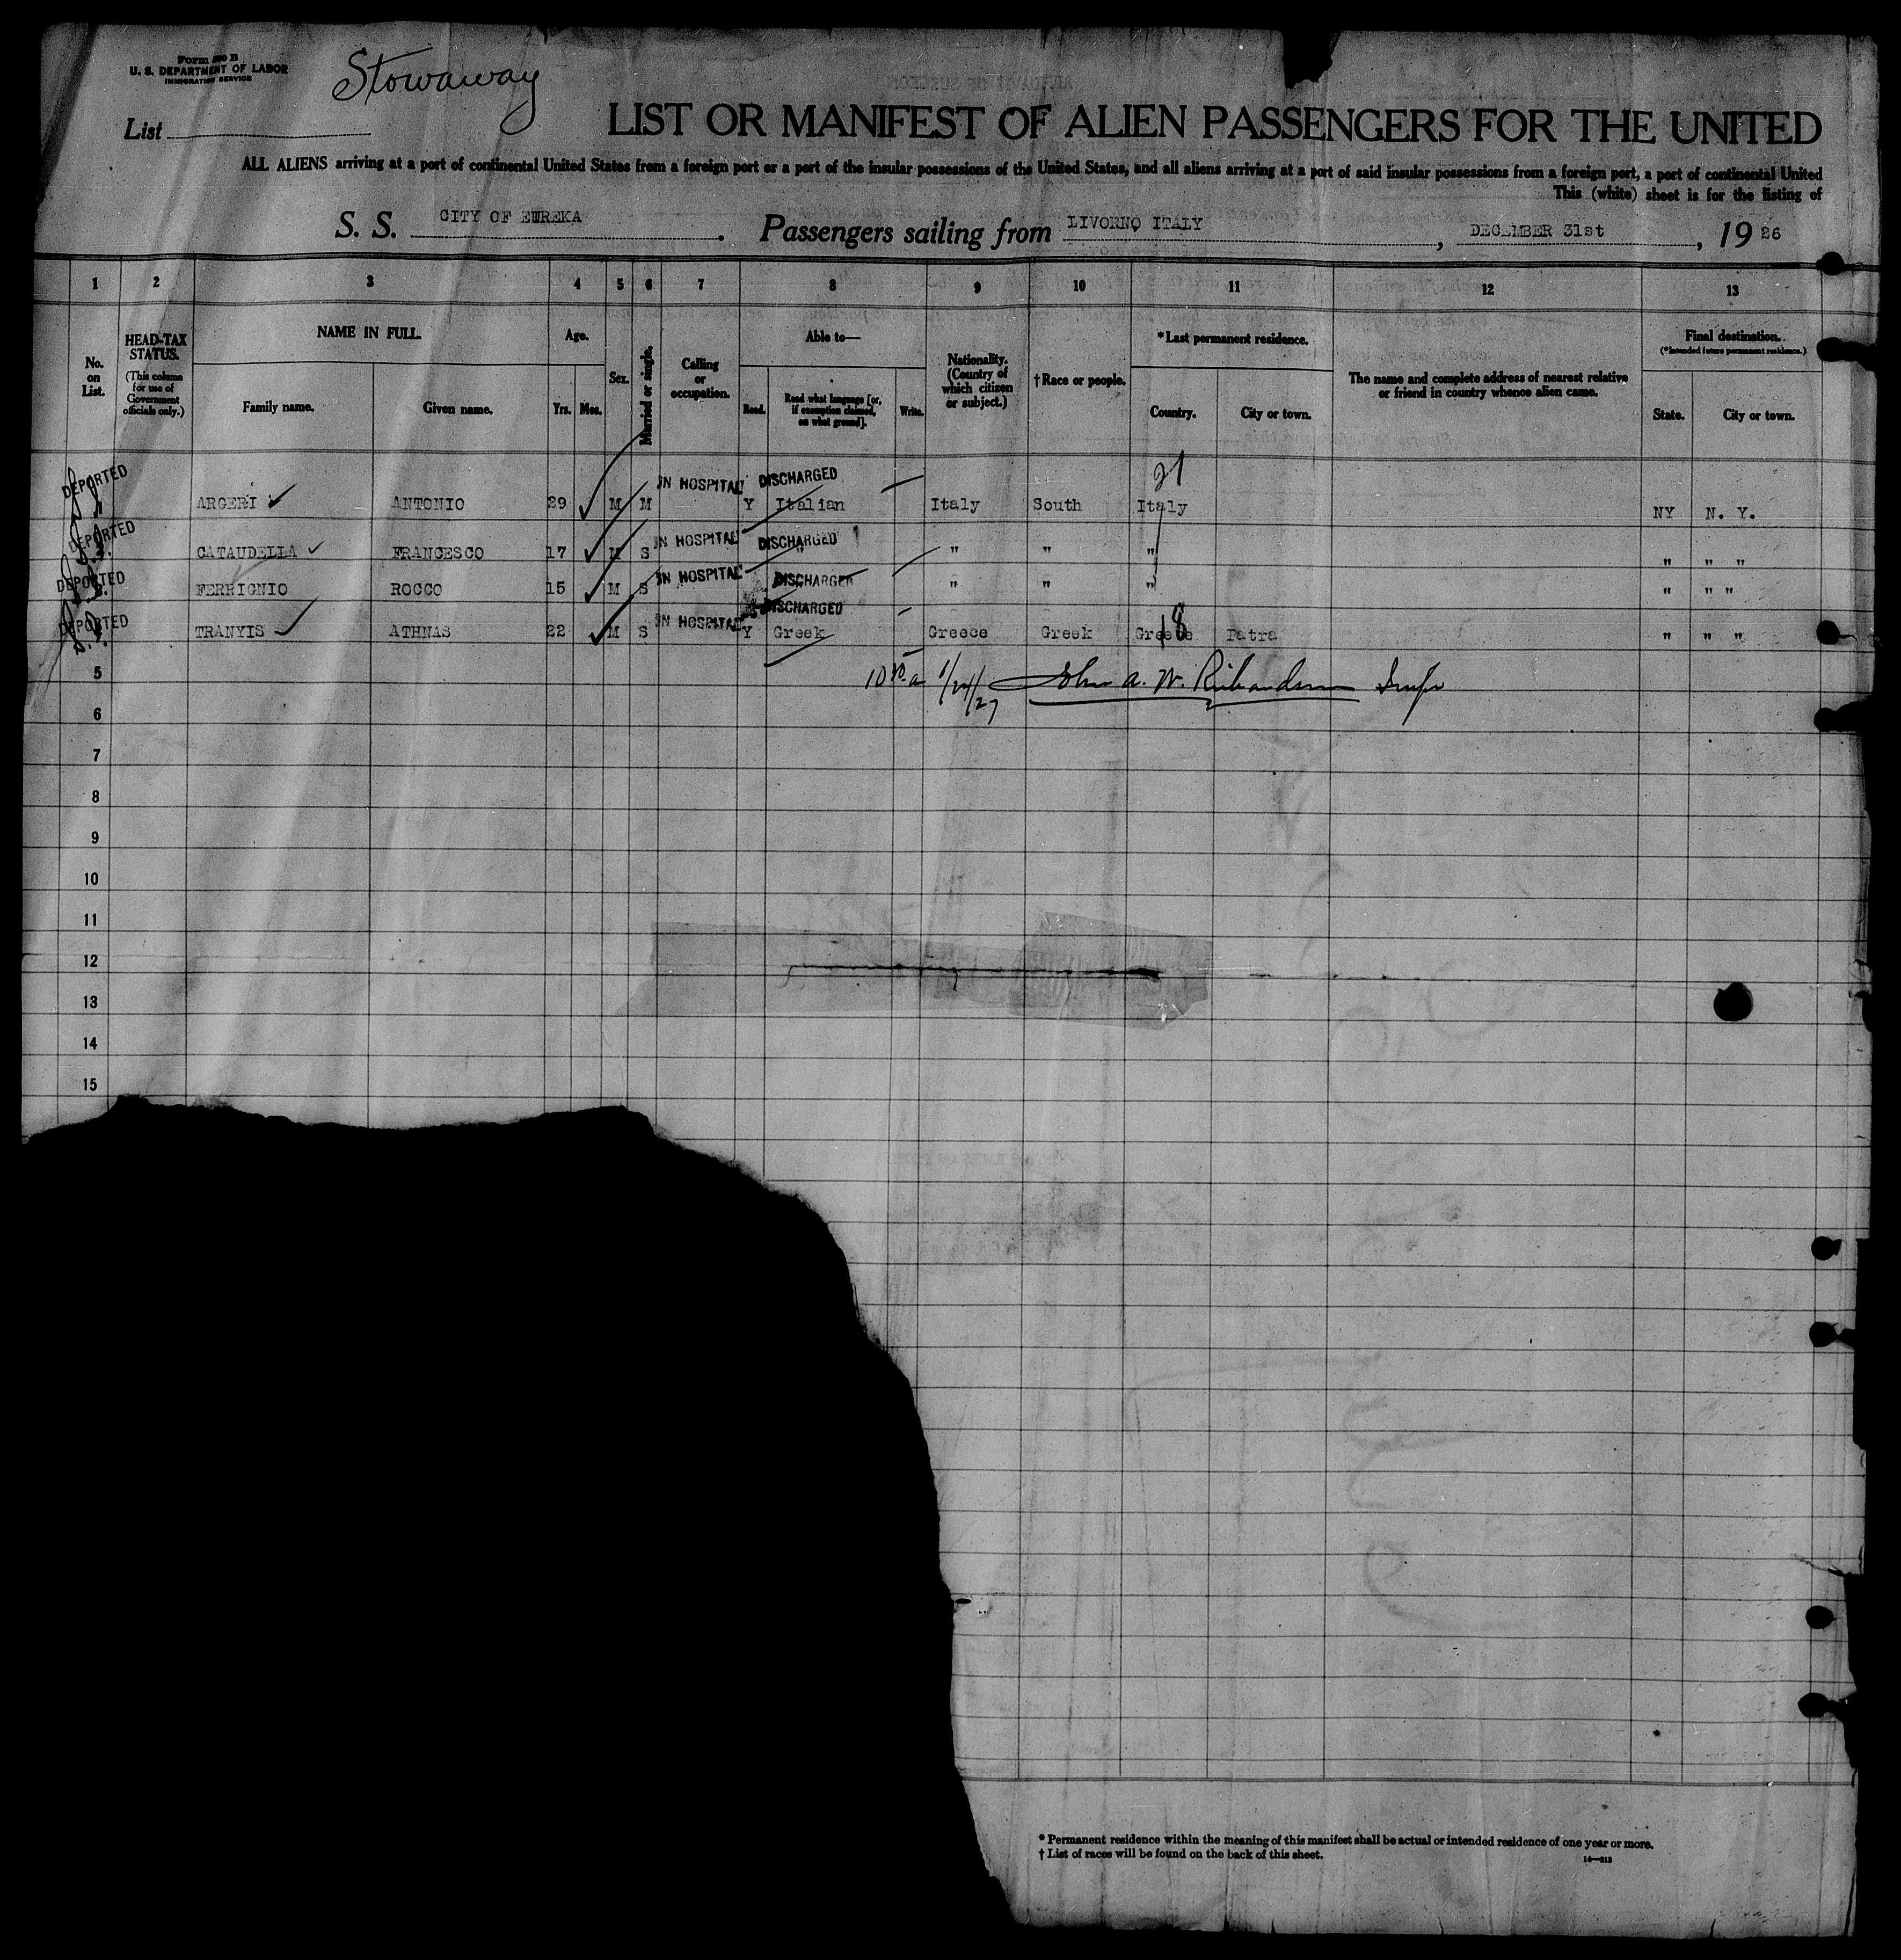 Form 500 B
U. S. DEPARTMENT OF LABOR
IMMIGRATION SERVICE
Stowaway
List
LIST OR MANIFEST OF ALIEN PASSENGERS FOR THE UNITED
ALL ALIENS arriving at a port of continental United States from a foreign port or a port of the insular possessions of the United States, and all aliens arriving at a port of said insular possessions from a foreign port, a port of continental United
This (white) sheet is for the listing of
S. S. CITY OF EUREKA. Passengers sailing from LIVORNO ITALY, DECEMBER 31st, 1926
1 2 3 4 5 6 7 8 9 10 11 12 13
No. on List.
HEAD-TAX STATUS.
(This column for use of Government officials only.)
NAME IN FULL.
Family name. Given name.
Age.
Yrs. Mos.
Sex.
Married or single.
Calling or occupation.
Able to—
Read. Read what language [or, if exemption claimed, on what ground]. Write.
Nationality. (Country of which citizen or subject.)
† Race or people.
*Last permanent residence.
Country. City or town.
The name and complete address of nearest relative or friend in country whence alien came.
Final destination.
(*Intended future permanent residence.)
State. City or town.
21
DEPORTED ARGERI ANTONIO 29 M M IN HOSPITAL DISCHARGED Y Italian Italy South Italy NY N. Y.
DEPORTED CATAUDELLA FRANCESCO 17 M S IN HOSPITAL DISCHARGED " " " " " " "
DEPORTED FERRIGNIO ROCCO 15 M S IN HOSPITAL DISCHARGED " " " " " "
DEPORTED TRANYIS ATHNAS 22 M S IN HOSPITAL DISCHARGED Y Greek Greece Greek Greece 18 Patra " " "
5 John A. W. Richardson
6
7
8
9
10
11
12
13
14
15
* Permanent residence within the meaning of this manifest shall be actual or intended residence of one year or more.
† List of races will be found on the back of this sheet.
14—212